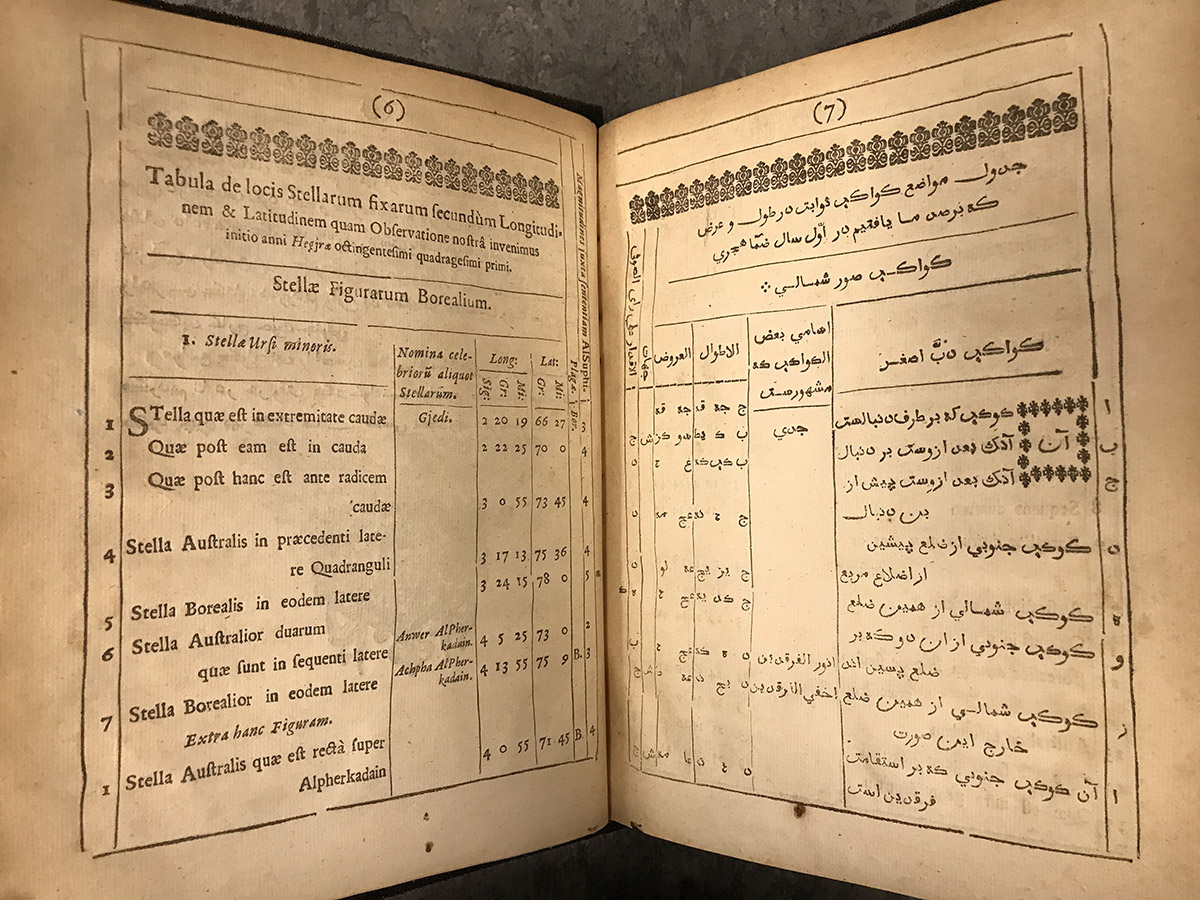 (6)
Tabula de locis Stellarum fixarum secundùm Longitudi-
nem & Latitudinem quam Observatione nostrâ invenimus
initio anni Hegjræ octingentesimi quadragesimi primi.
Stellæ Figurarum Borealium.
1. Stellæ Ursi minoris.
Nomina cele-
briorũ aliquot
Stellarum.
Long:
Sig: Gr: Mi:
Lat:
Gr: Mi:
Magnitudines juxta sententiam AlSuphi.
1 STella quæ est in extremitate caudæ Gjedi. 2 20 19 66 27 3
2 Quæ post eam est in cauda 2 22 25 70 0 4
3 Quæ post hanc est ante radicem
caudæ 3 0 55 73 45 4
4 Stella Australis in præcedenti late-
re Quadranguli 3 17 13 75 36 4
5 Stella Borealis in eodem latere 3 24 15 78 0 5
6 Stella Australior duarum
quæ sunt in sequenti latere Anwer AlPher-
kadain. 4 5 25 73 0 2
7 Stella Borealior in eodem latere Achpha AlPher-
kadain. 4 13 55 75 9 B. 3
Extra hanc Figuram.
1 Stella Australis quæ est rectà super
Alpherkadain 4 0 55 71 45 B. 4
(7)
جدول مواضع كواكب ثوابت در طول و عرض
كه برصد ما يافتيم در اوّل سال ضما هجري
كواكب صور شمالي
كواكب دبّ اصغر
اسامي بعض
الكواكب كه
مشهورست
الاطوال
العروض
جهات
ا كوكبي كه بر طرف دنبالست جدي
ب آن آنك بعد ازوست بر دنبال
ج آنك بعد ازوست پيش از
بن دنبال
د كوكب جنوبي از ضلع پيشين
از اضلاع مربع
ه كوكب شمالي از همين ضلع
و كوكب جنوبي از ان دو كه بر
ضلع پسين اند انور الفرقدين
ز كوكب شمالي از همين ضلع اخفي الفرقدين
خارج اين صورت
ا آن كوكب جنوبي كه بر استقامت
فرقدين است